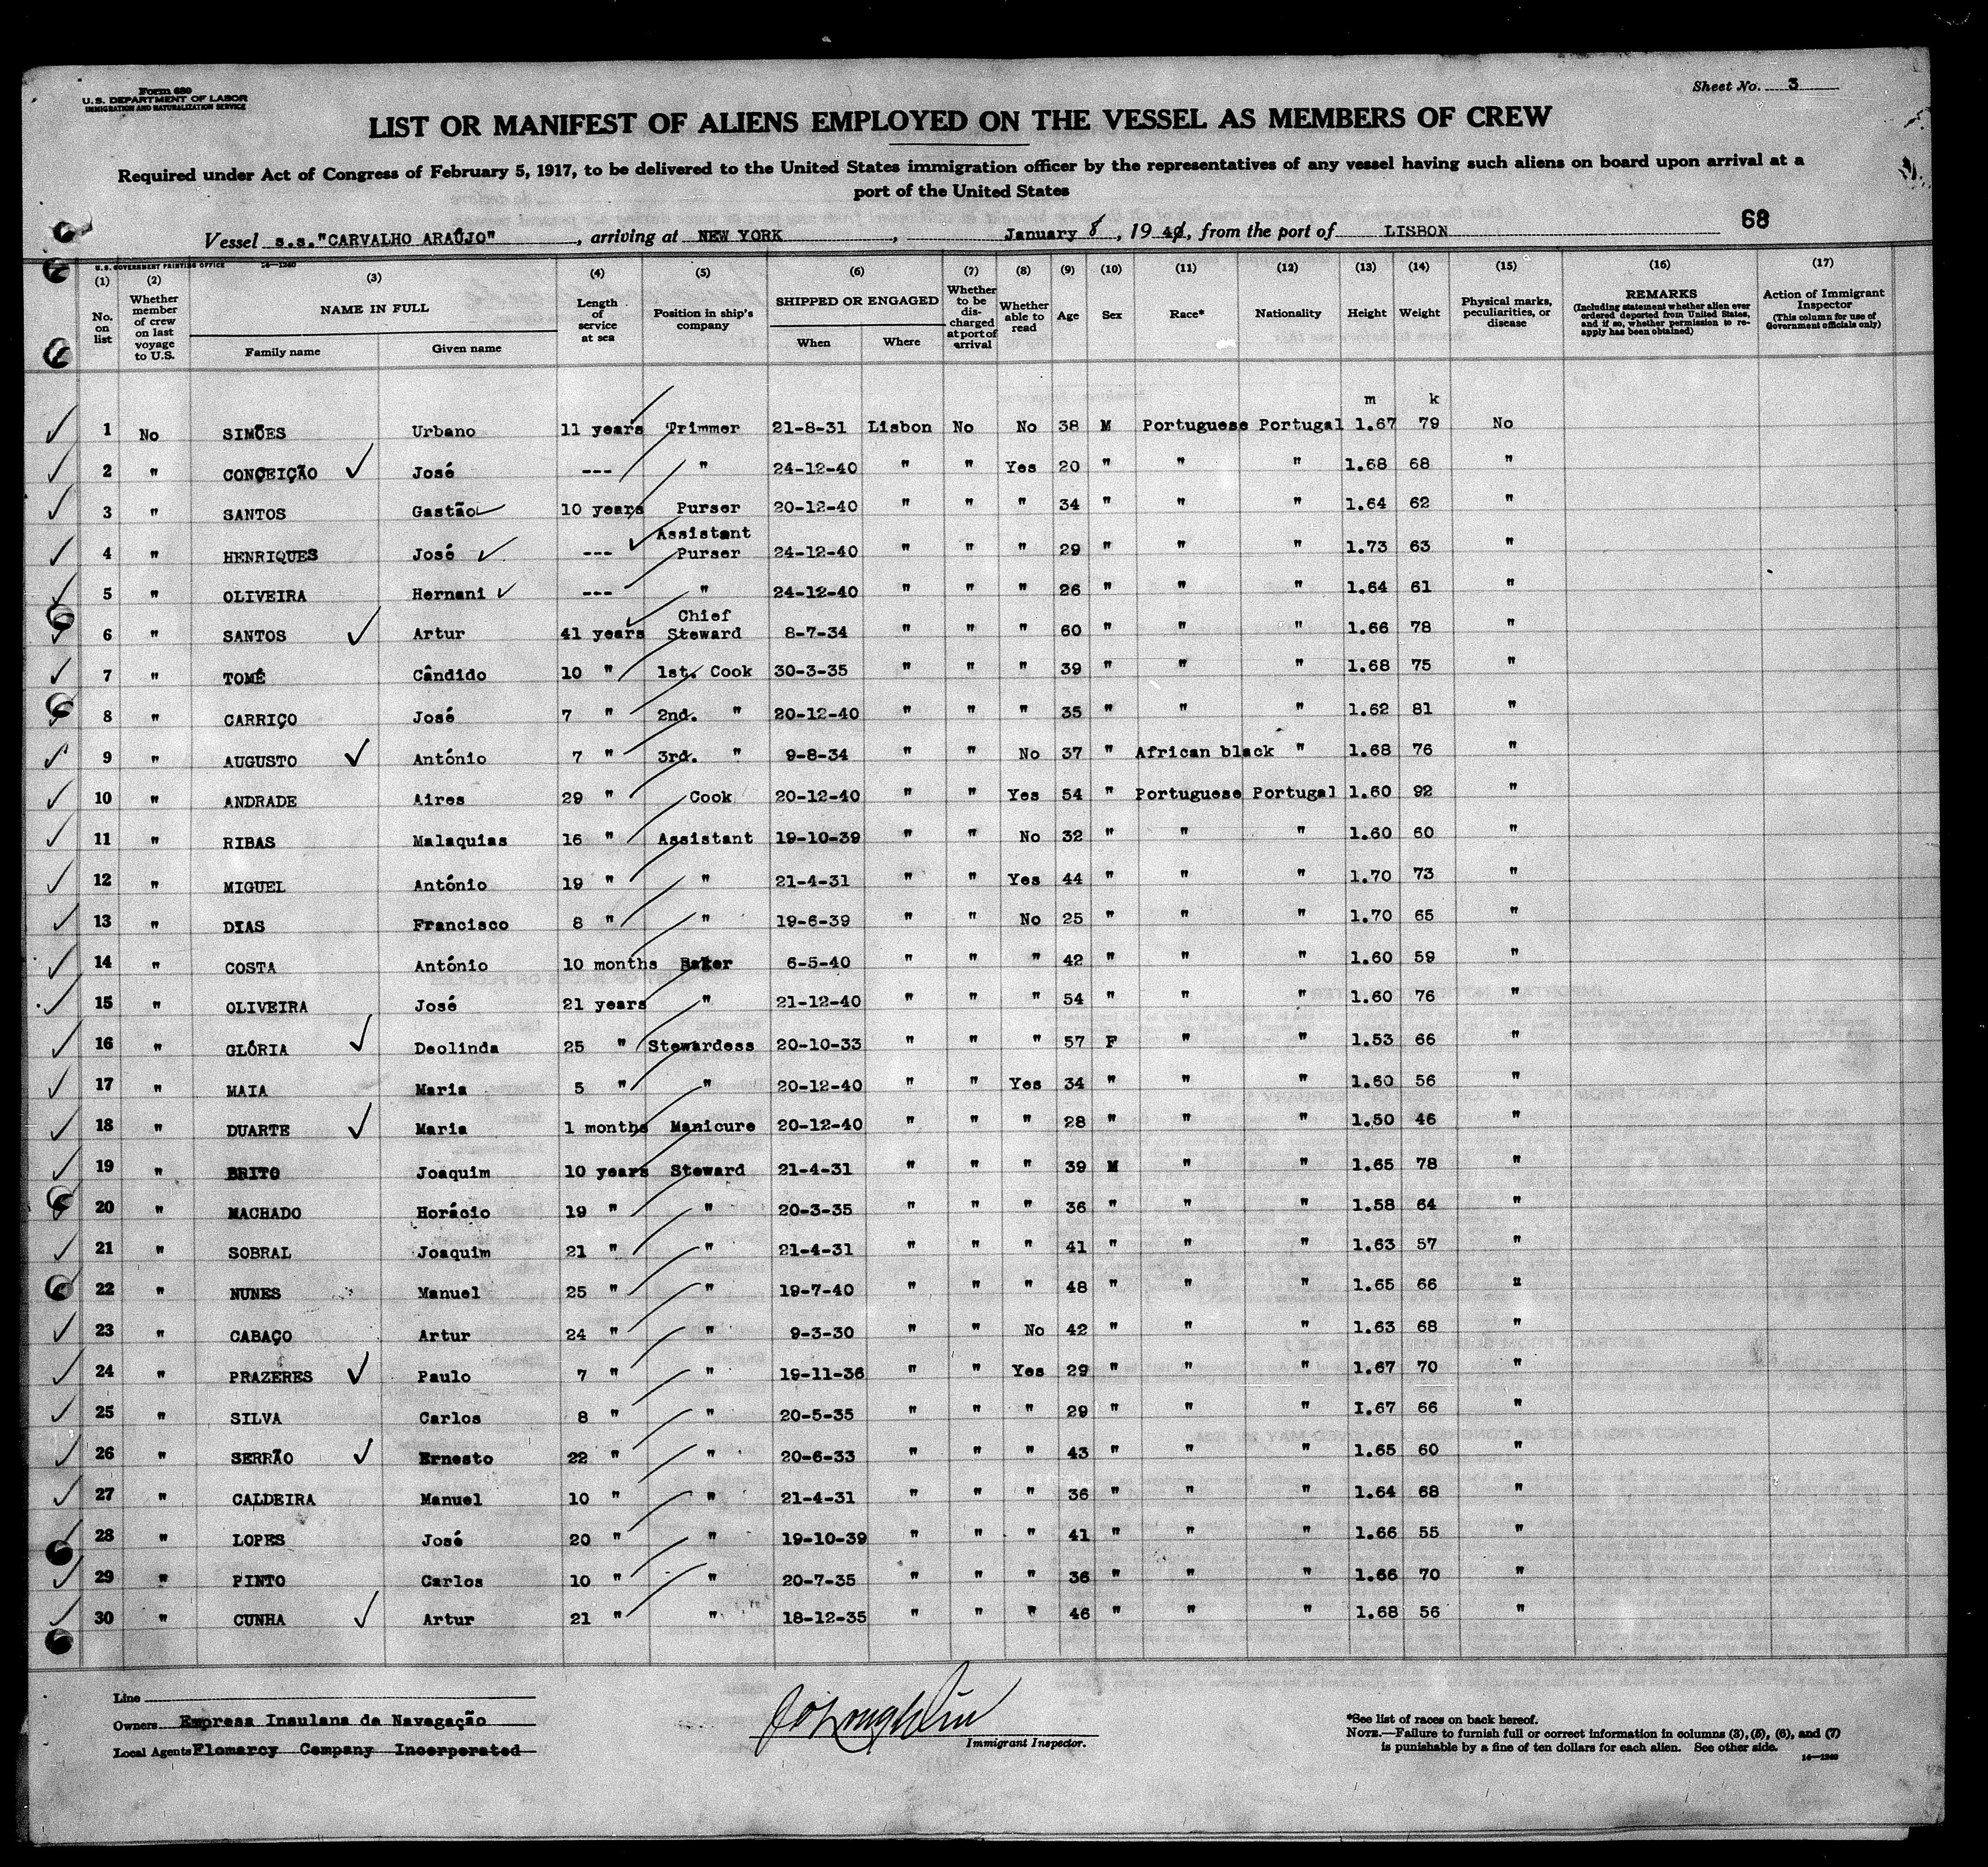 Form 680
U.S. DEPARTMENT OF LABOR
IMMIGRATION AND NATURALIZATION SERVICE
Sheet No. 3
LIST OR MANIFEST OF ALIENS EMPLOYED ON THE VESSEL AS MEMBERS OF CREW
Required under Act of Congress of February 5, 1917, to be delivered to the United States immigration officer by the representatives of any vessel having such aliens on board upon arrival at a
port of the United States
68
Vessel s.s."CARVALHO ARAÚJO", arriving at NEW YORK, January 8, 1941, from the port of LISBON
U.S. GOVERNMENT PRINTING OFFICE 14—1240
(1) No. on list (2) Whether member of crew on last voyage to U.S. (3) NAME IN FULL Family name Given name (4) Length of service at sea (5) Position in ship's company (6) SHIPPED OR ENGAGED When Where (7) Whether to be discharged at port of arrival (8) Whether able to read (9) Age (10) Sex (11) Race* (12) Nationality (13) Height (14) Weight (15) Physical marks, peculiarities, or disease (16) REMARKS (Including statement whether alien ever ordered deported from United States, and if so, whether permission to reapply has been obtained) (17) Action of Immigrant Inspector (This column for use of Government officials only)
m k
1 No SIMÕES Urbano 11 years Trimmer 21-8-31 Lisbon No No 38 M Portuguese Portugal 1.67 79 No
2 " CONÇEIÇÃO José --- " 24-12-40 " " Yes 20 " " " 1.68 68 "
3 " SANTOS Gastão 10 years Purser 20-12-40 " " " 34 " " " 1.64 62 "
4 " HENRIQUES José --- Assistant Purser 24-12-40 " " " 29 " " " 1.73 63 "
5 " OLIVEIRA Hernani --- " 24-12-40 " " " 26 " " " 1.64 61 "
6 " SANTOS Artur 41 years Chief Steward 8-7-34 " " " 60 " " " 1.66 78 "
7 " TOMÉ Cândido 10 " 1st. Cook 30-3-35 " " " 39 " " " 1.68 75 "
8 " CARRIÇO José 7 " 2nd. " 20-12-40 " " " 35 " " " 1.62 81 "
9 " AUGUSTO António 7 " 3rd. " 9-8-34 " " No 37 " African black " 1.68 76 "
10 " ANDRADE Aires 29 " Cook 20-12-40 " " Yes 54 " Portuguese Portugal 1.60 92 "
11 " RIBAS Malaquias 16 " Assistant 19-10-39 " " No 32 " " " 1.60 60 "
12 " MIGUEL António 19 " " 21-4-31 " " Yes 44 " " " 1.70 73 "
13 " DIAS Francisco 8 " " 19-6-39 " " No 25 " " " 1.70 65 "
14 " COSTA António 10 months Baker 6-5-40 " " " 42 " " " 1.60 59 "
15 " OLIVEIRA José 21 years " 21-12-40 " " " 54 " " " 1.60 76 "
16 " GLÓRIA Deolinda 25 " Stewardess 20-10-33 " " " 57 F " " 1.53 66 "
17 " MAIA Maria 5 " " 20-12-40 " " Yes 34 " " " 1.60 56 "
18 " DUARTE Maria 1 months Manicure 20-12-40 " " " 28 " " " 1.50 46 "
19 " BRITO Joaquim 10 years Steward 21-4-31 " " " 39 M " " 1.65 78 "
20 " MACHADO Horácio 19 " " 20-3-35 " " " 36 " " " 1.58 64 "
21 " SOBRAL Joaquim 21 " " 21-4-31 " " " 41 " " " 1.63 57 "
22 " NUNES Manuel 25 " " 19-7-40 " " " 48 " " " 1.65 66 "
23 " CABAÇO Artur 24 " " 9-3-30 " " No 42 " " " 1.63 68 "
24 " PRAZERES Paulo 7 " " 19-11-36 " " Yes 29 " " " 1.67 70 "
25 " SILVA Carlos 8 " " 20-5-35 " " " 29 " " " I.67 66 "
26 " SERRÃO Ernesto 22 " " 20-6-33 " " " 43 " " " 1.65 60 "
27 " CALDEIRA Manuel 10 " " 21-4-31 " " " 36 " " " 1.64 68 "
28 " LOPES José 20 " " 19-10-39 " " " 41 " " " 1.66 55 "
29 " PINTO Carlos 10 " " 20-7-35 " " " 36 " " " 1.66 70 "
30 " CUNHA Artur 21 " " 18-12-35 " " " 46 " " " 1.68 56 "
Line
Owners Empresa Insulana de Navegação
Local Agents Flomarcy Company Incorporated
J O'Loughlin
Immigrant Inspector.
*See list of races on back hereof.
NOTE.—Failure to furnish full or correct information in columns (3), (5), (6), and (7)
is punishable by a fine of ten dollars for each alien. See other side.
14—1240